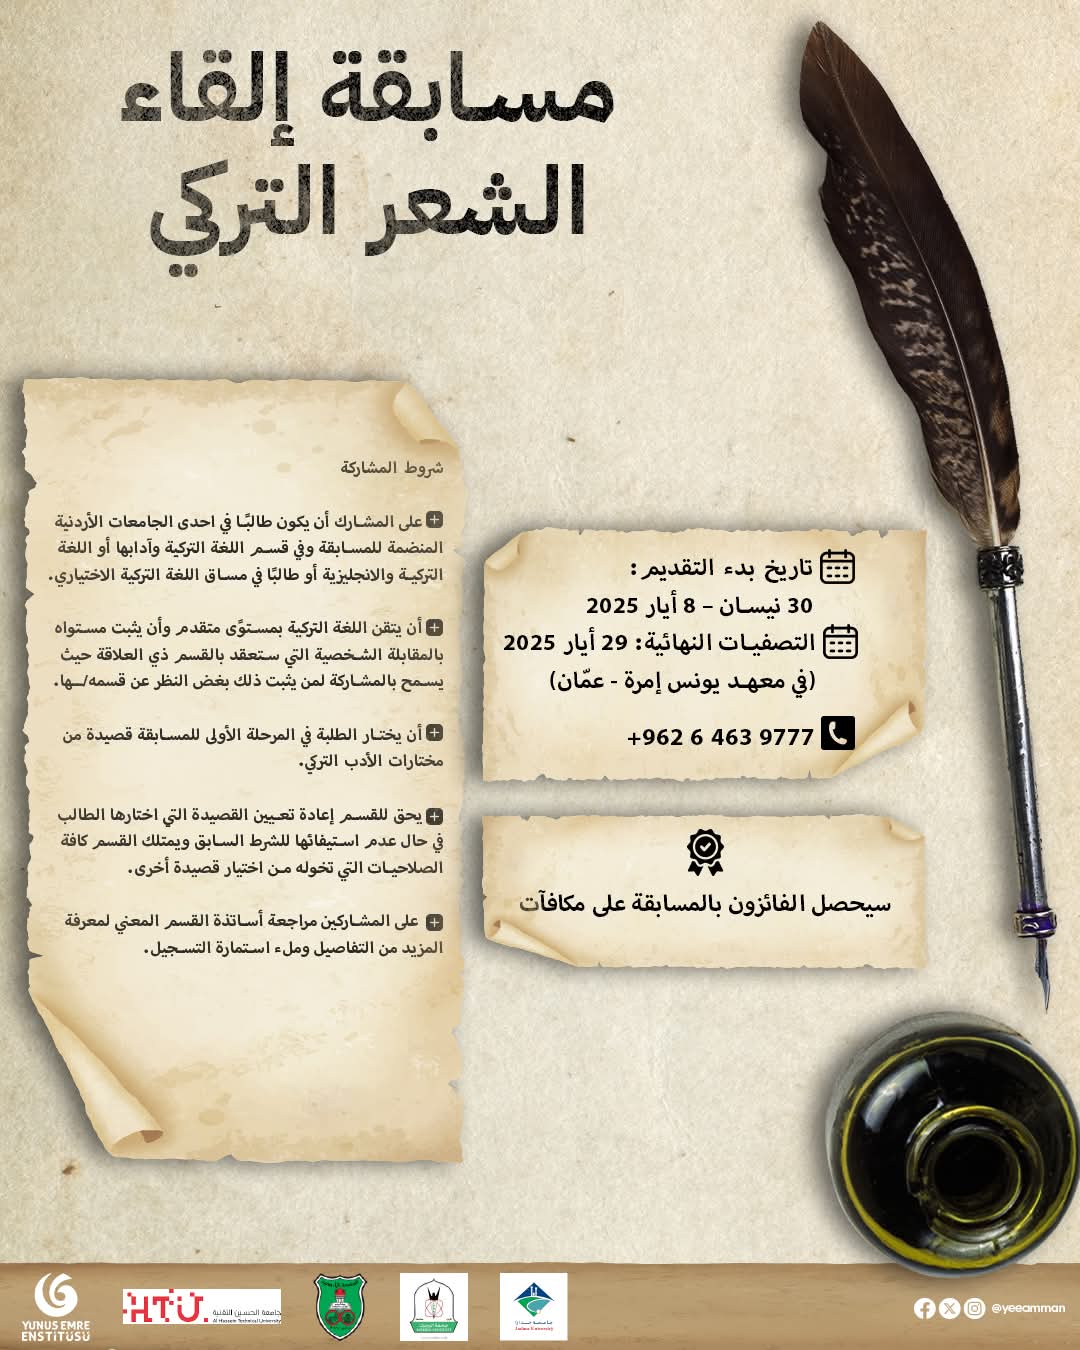 مسابقة إلقاء
الشعر التركي
شروط المشاركة
على المشارك أن يكون طالبًا في احدى الجامعات الأردنية
المنضمة للمسابقة وفي قسم اللغة التركية وآدابها أو اللغة
التركية والانجليزية أو طالبًا في مساق اللغة التركية الاختياري.
أن يتقن اللغة التركية بمستوًى متقدم وأن يثبت مستواه
بالمقابلة الشخصية التي ستعقد بالقسم ذي العلاقة حيث
يسمح بالمشاركة لمن يثبت ذلك بغض النظر عن قسمه/ـها.
أن يختار الطلبة في المرحلة الأولى للمسابقة قصيدة من
مختارات الأدب التركي.
يحق للقسم إعادة تعيين القصيدة التي اختارها الطالب
في حال عدم استيفائها للشرط السابق ويمتلك القسم كافة
الصلاحيات التي تخوله من اختيار قصيدة أخرى.
على المشاركين مراجعة أساتذة القسم المعني لمعرفة
المزيد من التفاصيل وملء استمارة التسجيل.
تاريخ بدء التقديم:
30 نيسان – 8 أيار 2025
التصفيات النهائية: 29 أيار 2025
(في معهد يونس إمرة - عمّان)
+962 6 463 9777
سيحصل الفائزون بالمسابقة على مكافآت
YUNUS EMRE
ENSTİTÜSÜ
HTU
جامعة الحسين التقنية
Al Hussein Technical University
جامعة جدارا
Jadara University
@yeeamman